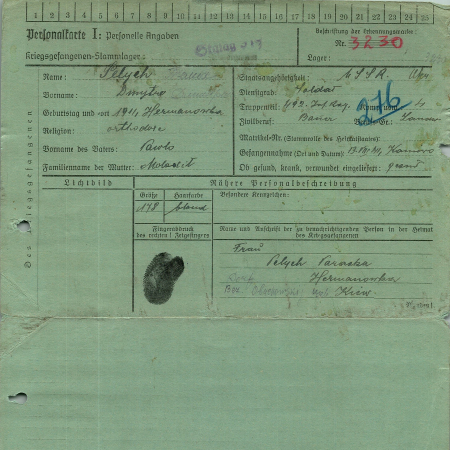 1 2 3 4 5 6 7 8 9 10 11 12 13 14 15 16 17 18 19 20 21 22 23 24 25
Personalkarte I: Personelle Angaben
Beschriftung der Erkennungsmarke
Kriegsgefangenen-Stammlager:
Nr. 3230
Lager:
Des Kriegsgefangenen
Name: Pelych
Vorname: Dmytro
Geburtstag und -ort 1911, Hermanowka
Religion: orthodox
Vorname des Vaters: Pawlo
Familienname der Mutter:
Staatsangehörigkeit: USSR.
Dienstgrad: Soldat
Truppenteil: 492. Inf. Reg. Komp. usw.:
Zivilberuf: Bauer Berufs-Gr.:
276
Matrikel-Nr. (Stammrolle des Heimatstaates):
Gefangennahme (Ort und Datum):
Ob gesund, krank, verwundet eingeliefert: gesund
Lichtbild
Nähere Personalbeschreibung
Größe Haarfarbe
178 blond
Besondere Kennzeichen:
Fingerabdruck
des rechten! Zeigefingers
Name und Anschrift der zu benachrichtigenden Person in der Heimat
des Kriegsgefangenen
Frau
Pelych Paraska
Dorf Hermanowka
Bez. Kiew.